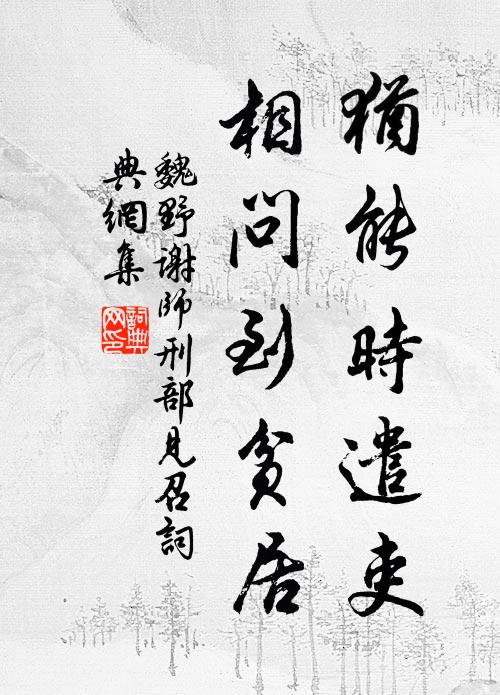 猶能時遣吏
相問到貧居
魏野謝師刑部見召詞
典網集
詞典網印